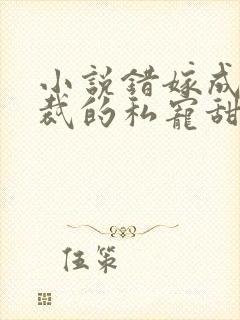 小説錯嫁成
裁的私寵甜
伍策